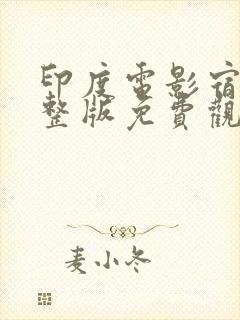 印度電影宿
整版免費觀
麦小冬